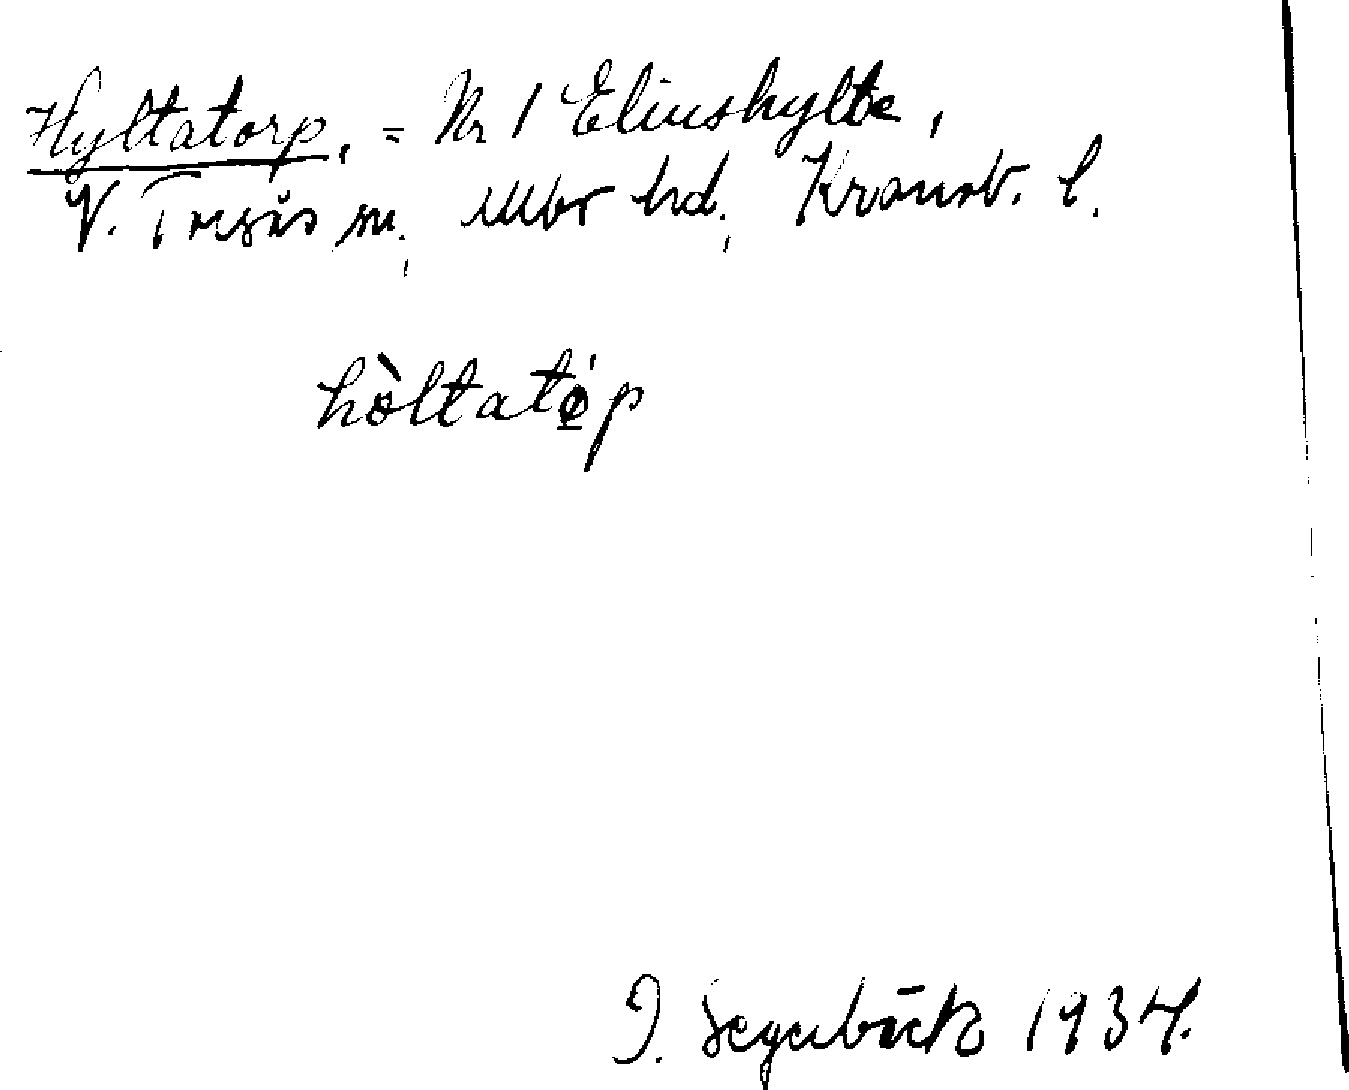 Hyltatorp, = Nr 1 Elinshylte,
V. Torsås sn, Allbo hd, Kronob. l.
hòltatóp
J. Segerbäck 1934.